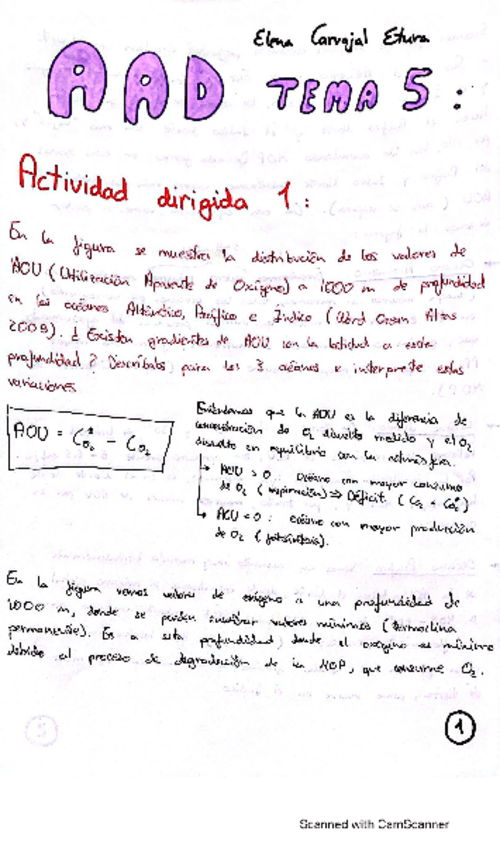 Elena Carvajal Etura
AAD TEMA 5:
Actividad dirigida 1:
En la figura se muestra la distribución de los valores de
AOU (Utilización Aparente de Oxígeno) a 1000 m de profundidad
en los océanos Atlántico, Pacífico e Índico (World Ocean Atlas
2009). ¿Existen gradientes de AOU con la latitud a esta
profundidad? Descríbalos para los 3 océanos e interprete estas
variaciones
AOU = C*O2 - CO2
Entendemos que la AOU es la diferencia de
concentración de O2 disuelto medido y el O2
disuelto en equilibrio con la atmósfera
↳ AOU > 0: Océano con mayor consumo
de O2 (respiración) ⇒ Déficit. (CO2 < C*O2)
↳ AOU < 0: océano con mayor producción
de O2 (fotosíntesis).
En la figura vemos valores de oxígeno a una profundidad de
1000 m, donde se pueden encontrar valores mínimos (termoclina
permanente). Es a esta profundidad donde el oxígeno es mínimo
debido al proceso de degradación de la MOP, que consume O2.
1
Scanned with CamScanner